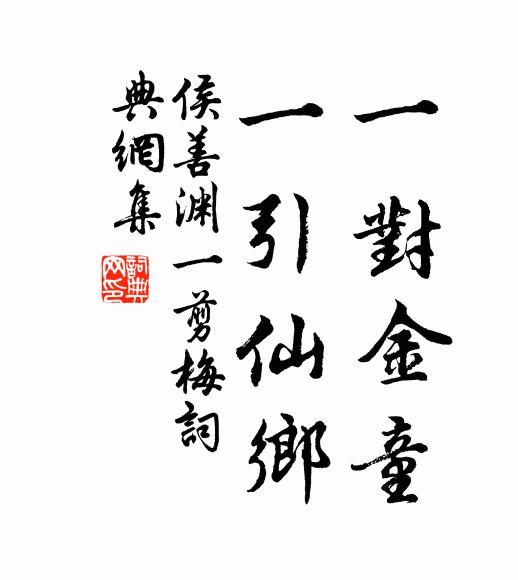 一對金童
一引仙鄉
侯善渊一剪梅詞
典網集
詞典
网印